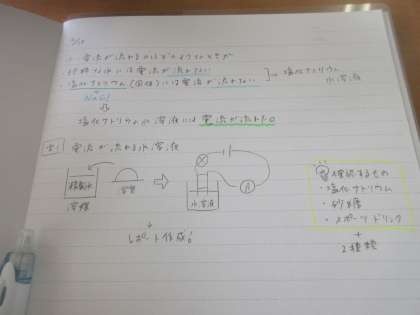 電流が流れるのはどのようなときか
純粋な水には電流が流れない
塩化ナトリウム(固体)には電流が流れない
→塩化ナトリウム
水溶液
NaCl
⇩
塩化ナトリウム水溶液には電流が流れた。
電流が流れる水溶液
精製水
溶質
溶媒
A
水溶液
レポート作成!
確認するもの
・塩化ナトリウム
・砂糖
・スポーツドリンク
+
2種類